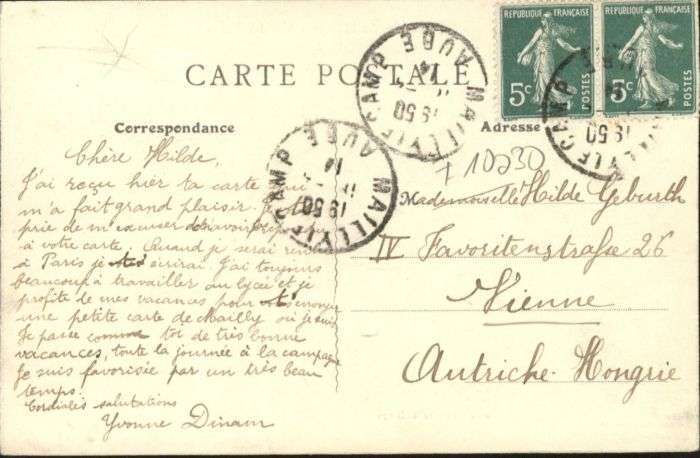 CARTE POSTALE
RÉPUBLIQUE FRANÇAISE
5c
POSTES
RÉPUBLIQUE FRANÇAISE
5c
POSTES
MAILLY LE CAMP AUBE
19 50
14
MAILLY LE CAMP AUBE
19 50
14
19 50
Correspondance
Adresse
+ 10930
Chère Hilde,
J'ai reçu hier ta carte qui
m'a fait grand plaisir. Je te
prie de m'excuser
à votre carte. Quand je serai
à Paris je t'écrirai. J'ai toujours
beaucoup à travailler au lycée et je
profite de mes vacances pour t'envoyer
une petite carte de Mailly où je suis
Je passe comme toi de très bonne
vacances, toute la journée à la campagne
Je suis favorisée par un très beau
temps.
Cordiales salutations
Yvonne Dinam
Mademoiselle Hilde Geburth
IV Favoritenstraße 26
Vienne
Autriche-Hongrie